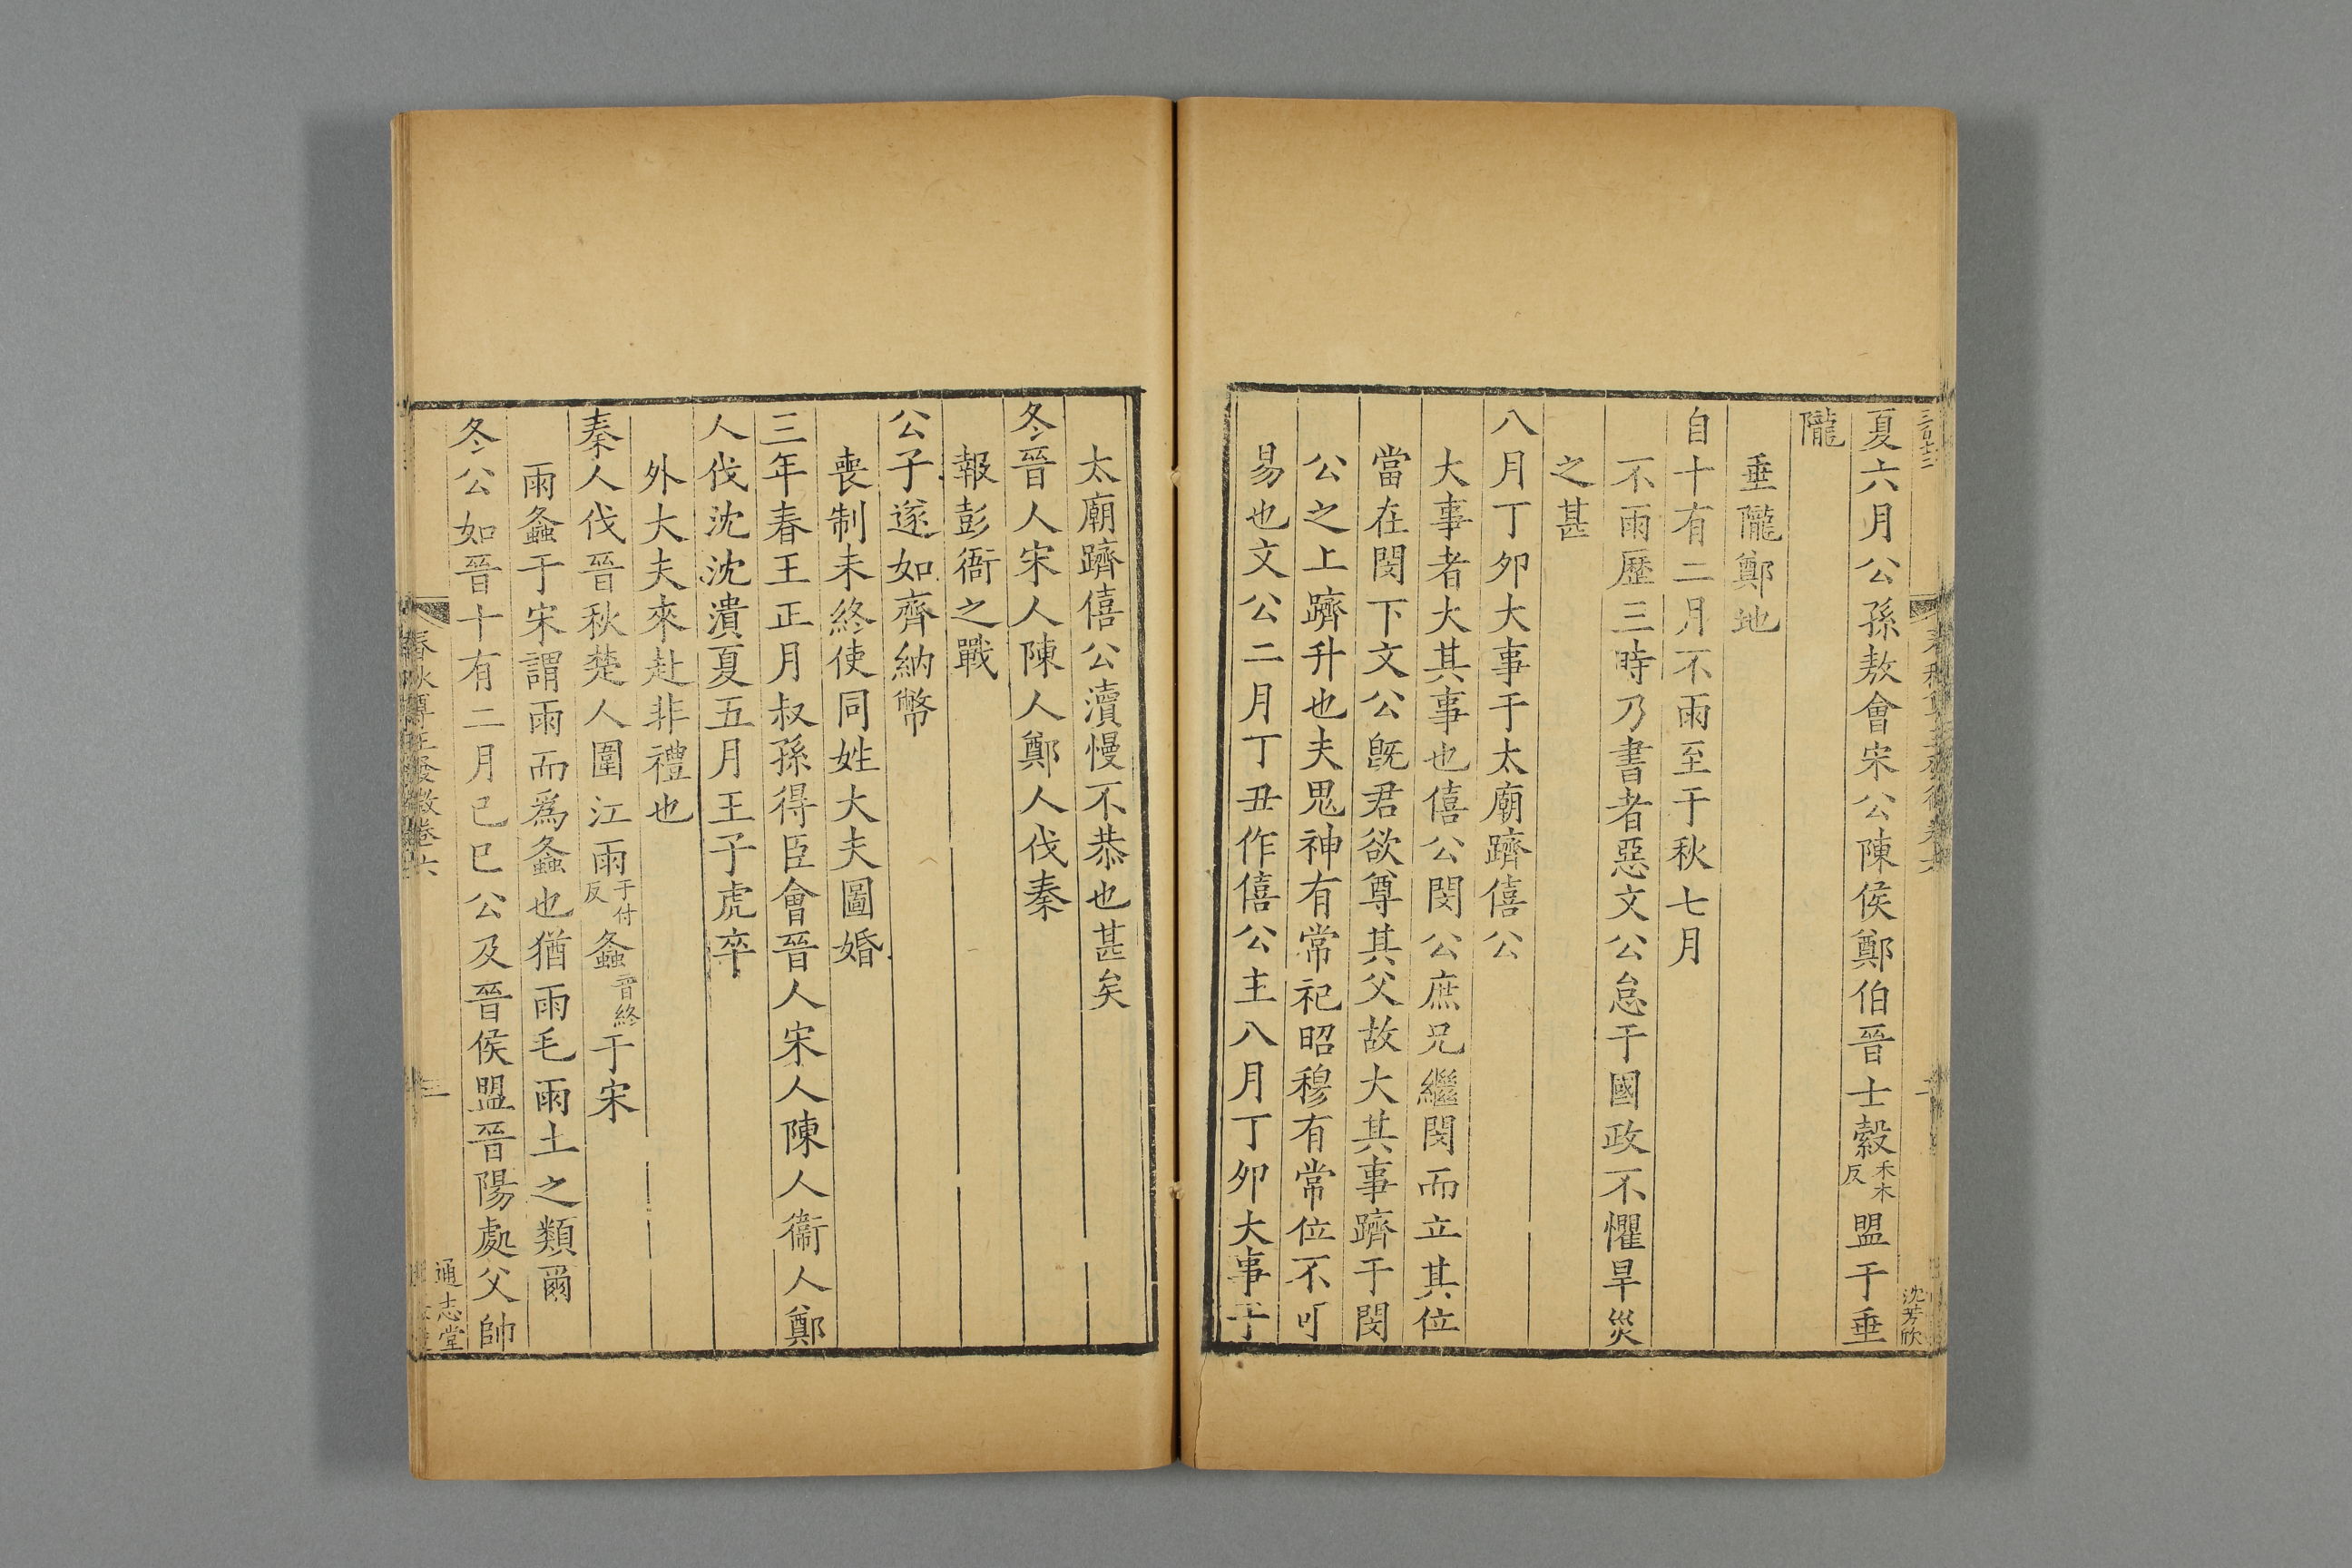 夏六月公孫敖會宋公陳侯鄭伯晉士縠禾木反盟于垂
隴
垂隴鄭地
自十有二月不雨至于秋七月
不雨歷三時乃書者惡文公怠于國政不懼旱災
之甚
八月丁夘大事于太廟躋僖公
大事者大其事也僖公閔公庶兄繼閔而立其位
當在閔下文公旣君欲尊其父故大其事躋于閔
公之上躋升也夫鬼神有常祀昭穆有常位不可
易也文公二月丁丑作僖公主八月丁夘大事于
沈芳欣
太廟躋僖公瀆慢不恭也甚矣
冬晉人宋人陳人鄭人伐秦
報彭衙之戰
公子遂如齊納幣
喪制未終使同姓大夫圖婚
三年春王正月叔孫得臣會晉人宋人陳人衞人鄭
人伐沈沈潰夏五月王子虎卒
外大夫來赴非禮也
秦人伐晉秋楚人圍江雨于付反螽音終于宋
雨螽于宋謂雨而爲螽也猶雨毛雨土之類爾
冬公如晉十有二月己巳公及晉侯盟晉陽處父帥
春秋尊王發微卷六
三
通志堂